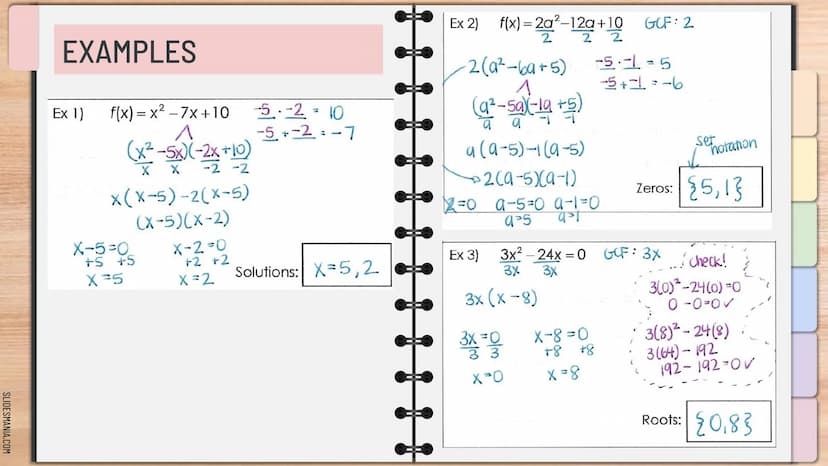 EXAMPLES
Ex 1) f(x) = x² − 7x + 10
-5 · -2 = 10
-5 + -2 = -7
(x² - 5x)(-2x + 10)
x x -2 -2
x(x-5) - 2(x-5)
(x-5)(x-2)
x-5=0 x-2=0
+5 +5 +2 +2
x=5 x=2
Solutions: x=5,2
Ex 2) f(x) = 2a² − 12a + 10 GCF: 2
2 2 2
2(a² - 6a + 5)
-5 · -1 = 5
-5 + -1 = -6
(a² - 5a)(-1a + 5)
a a -1 -1
a(a-5) -1(a-5)
2(a-5)(a-1)
2=0 a-5=0 a-1=0
a=5 a=1
set notation
Zeros: {5,1}
Ex 3) 3x² − 24x = 0 GCF: 3x
3x 3x
3x(x-8)
3x=0 x-8=0
3 3 +8 +8
x=0 x=8
check!
3(0)² - 24(0)=0
0 - 0=0✓
3(8)² - 24(8)
3(64) - 192
192 - 192=0✓
Roots: {0,8}
SLIDESMANIA.COM